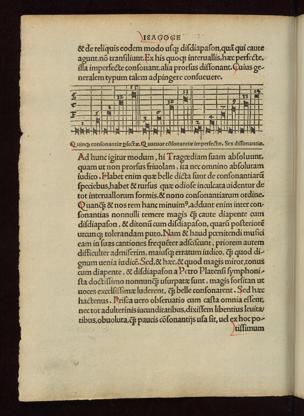 ISAGOGE
& de reliquis eodem modo usq; disdiapason, quã qui caute
agunt. nõ transiliunt. Ex his quoq; interuallis. hæc perfecte,
illa imperfecte consonant, alia prorsus dissonant. Cuius ge-
neralem typum talem adpingere consueuere.
Quinq; consonantiæ pfectæ. Quatuor cõsonantiæ imperfectæ. Sex dissonantiæ.
Ad hunc igitur modum, hi Tragœdiam suam absoluunt.
quam ut non prorsus friuolam. ita nec omnino absolutam
iudico. Habet enim quæ belle dicta sunt de consonantiarũ
speciebus, habet & rursus quæ odiose inculcata uidentur de
tot interuallorum formis, & nono consonantiarum ordine.
Quamq̃ & nos rem hanc
addunt enim inter con-
sonantias nonnulli temere magis q̃ caute diapente cum
disdiapason, & ditonũ cum disdiapason, quarũ posteriorẽ
utcunq; tolerandam puto. Nam & haud pœnitendi musici
eam in suas cantiones frequẽter adsciscunt, priorem autem
difficulter admiserim. mauis q; erratum iudico, q̃ quod di-
gnum uenia iudicẽ. Sed, & hæc, & quod magis miror, tonus
cum diapente, & disdiapason a Petro Platensi symphoni-
sta doctissimo nonnunq̃ usurpatæ sunt. magis forsitan ut
uoces excelsissimæ luderent, q̃ belle consonarent. Sed hæc
hactenus. Prisca uero obseruatio cum casta omnia essent,
nec tot adulterinis iucunditatibus, dixissem libentius leuita-
tibus, obuoluta. q̃ paucis cõsonantijs usa sit, uel ex hoc po-
tissimum